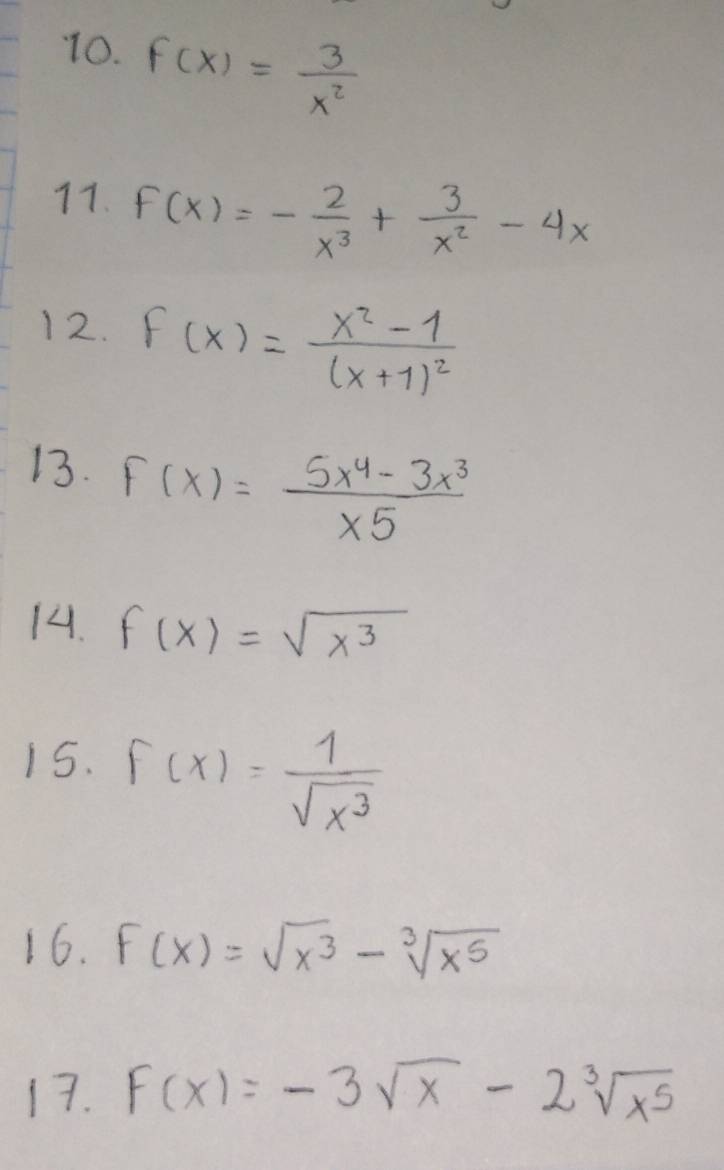 10. f(x) = 3/x²
11. f(x) = - 2/x³ + 3/x² - 4x
12. f(x) = (x² - 1)/(x+1)²
13. f(x) = (5x⁴ - 3x³)/x5
14. f(x) = √x³
15. f(x) = 1/√x³
16. f(x) = √x³ - ³√x⁵
17. f(x) = -3√x - 2³√x⁵